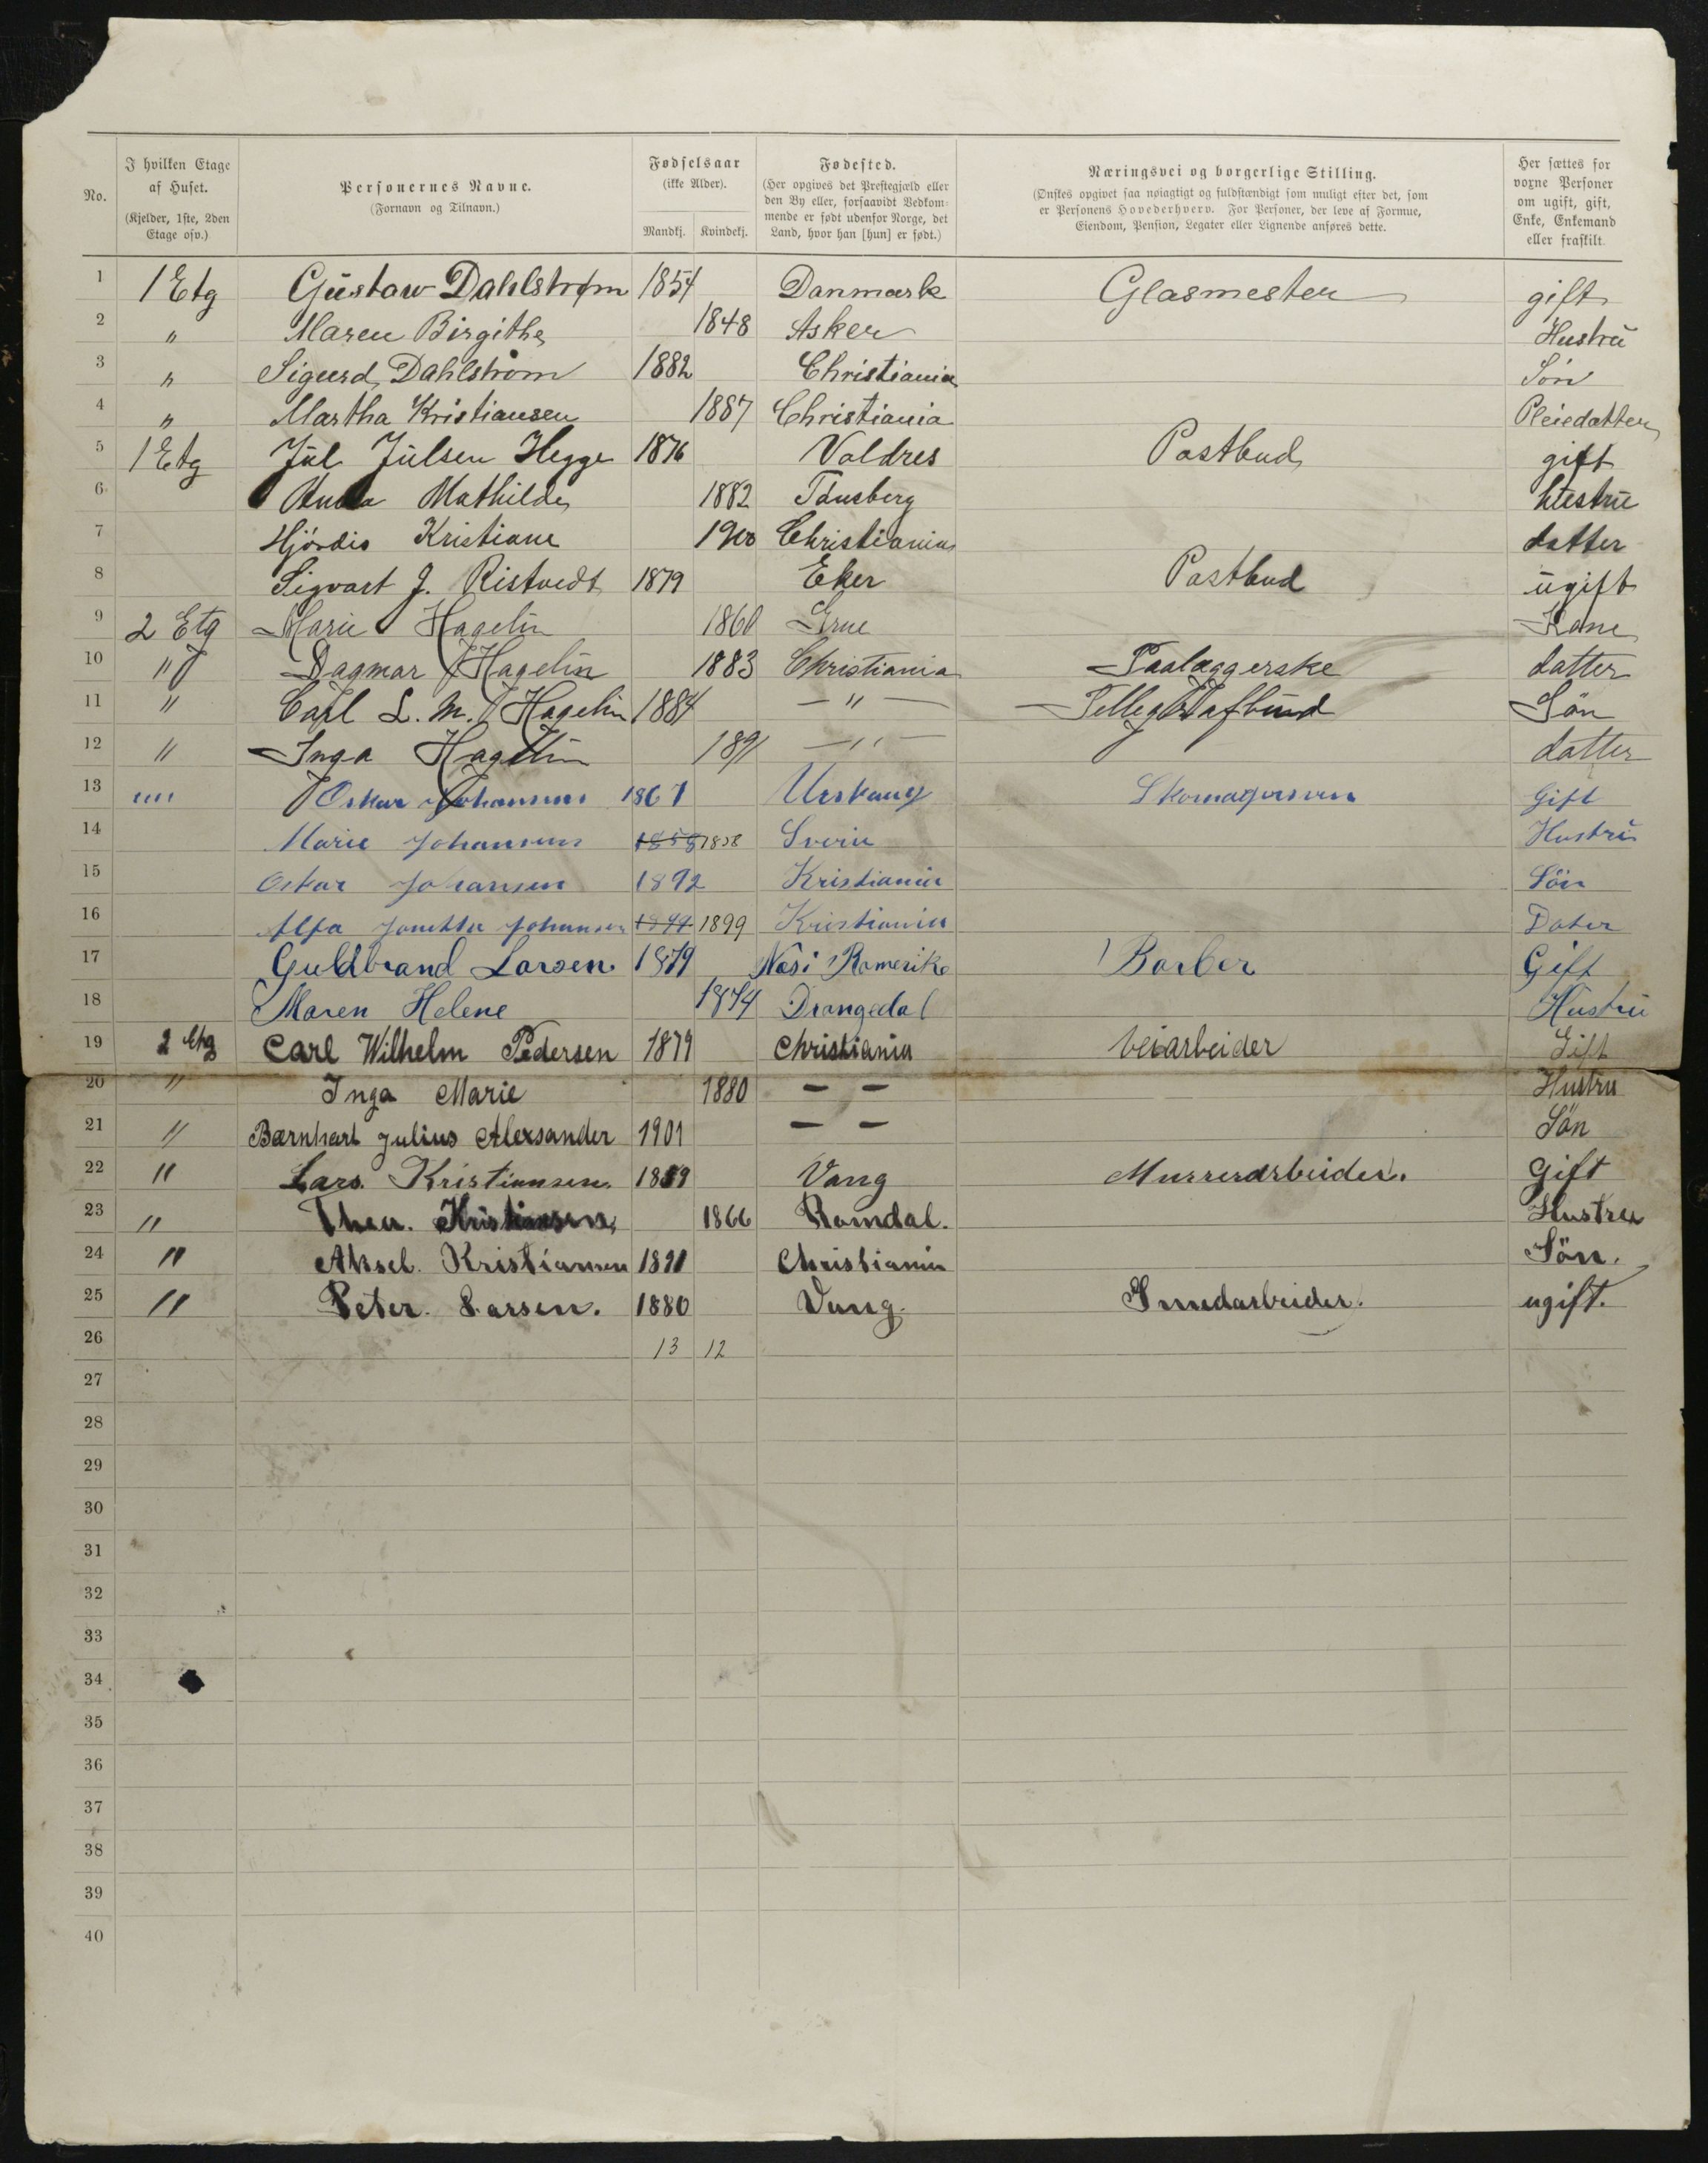 No.
I hvilken Etage af Huset. (Kjelder, 1ste, 2den Etage osv.)
Personernes Navne. (Fornavn og Tilnavn.)
Fødselsaar (ikke Alder). Mandkj. Kvindekj.
Fødested. (Her opgives det Prestegjæld eller den By eller, forsaavidt Vedkommende er født udenfor Norge, det Land, hvor han [hun] er født.)
Næringsvei og borgerlige Stilling. (Ønskes opgivet saa nøiagtigt og fuldstændigt som muligt efter det, som er Personens Hovederhverv. For Personer, der leve af Formue, Eiendom, Pension, Legater eller Lignende anføres dette.
Her sættes for voxne Personer om ugift, gift, Enke, Enkemand eller fraskilt.
1 1 Etg Gustaw Dahlstrøm 1854 Danmark Glasmester gift
2 " Maren Birgithe 1848 Asker Hustru
3 " Sigurd Dahlstrøm 1882 Christiania Sön
4 " Martha Kristiansen 1887 Christiania Pleiedatter
5 1 Etg Jul Julsen Hegge 1876 Valdres Postbud gift
6 Anna Mathilde 1882 Tønsberg hustru
7 Hjórdis Kristiane 1900 Christiania datter
8 Sigvart J. Ristvedt 1879 Eker Postbud ugift
9 2 Etg Marie Hagelin 1860 Grue Kone
10 " Dagmar Hagelin 1883 Christiania Paalæggerske datter
11 " Carl L. M. Hagelin 1884 — " — Tellegrafbud Sön
12 " Inga Hagelin 1891 — " — datter
13 "" Oskar Johansens 1867 Urskaug Skomagersven Gift
14 Marie Johansens 1858 1858 Sverie Hustru
15 Oskar Johansen 1892 Kristiania Sön
16 Johansen 1899 1899 Kristiania Dater
17 Guldbrand Larsen 1879 Nesi Romerike Barber Gift
18 Maren Helene 1874 Drangedal Hustru
19 2 Etg Carl Wilhelm Pedersen 1879 Christiania veiarbeider Gift
20 " Inga Marie 1880 — — Hustru
21 " Bærnhart Julius Alexsander 1901 — — Sön
22 " Lars. Kristiansen. 1859 Vang Murrerarbeider. Gift
23 " Thea. Kristiansen, 1866 Romdal. Hustru
24 " Aksel. Kristiansen 1891 Christiania Sön.
25 " Peter. Larsen. 1880 Vang. ugift.
26 13 12
27
28
29
30
31
32
33
34
35
36
37
38
39
40